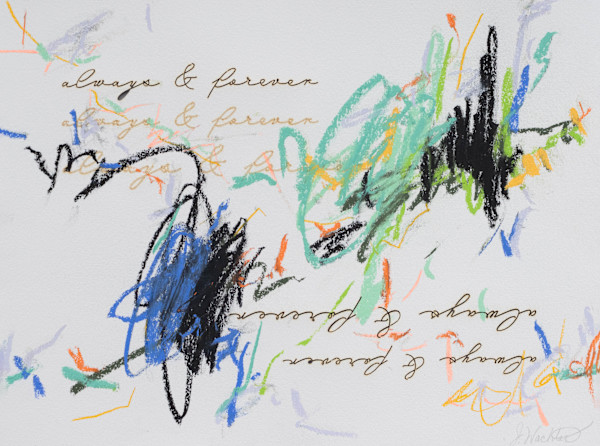 always & forever
always & forever
always & f
always & forever
always & forever